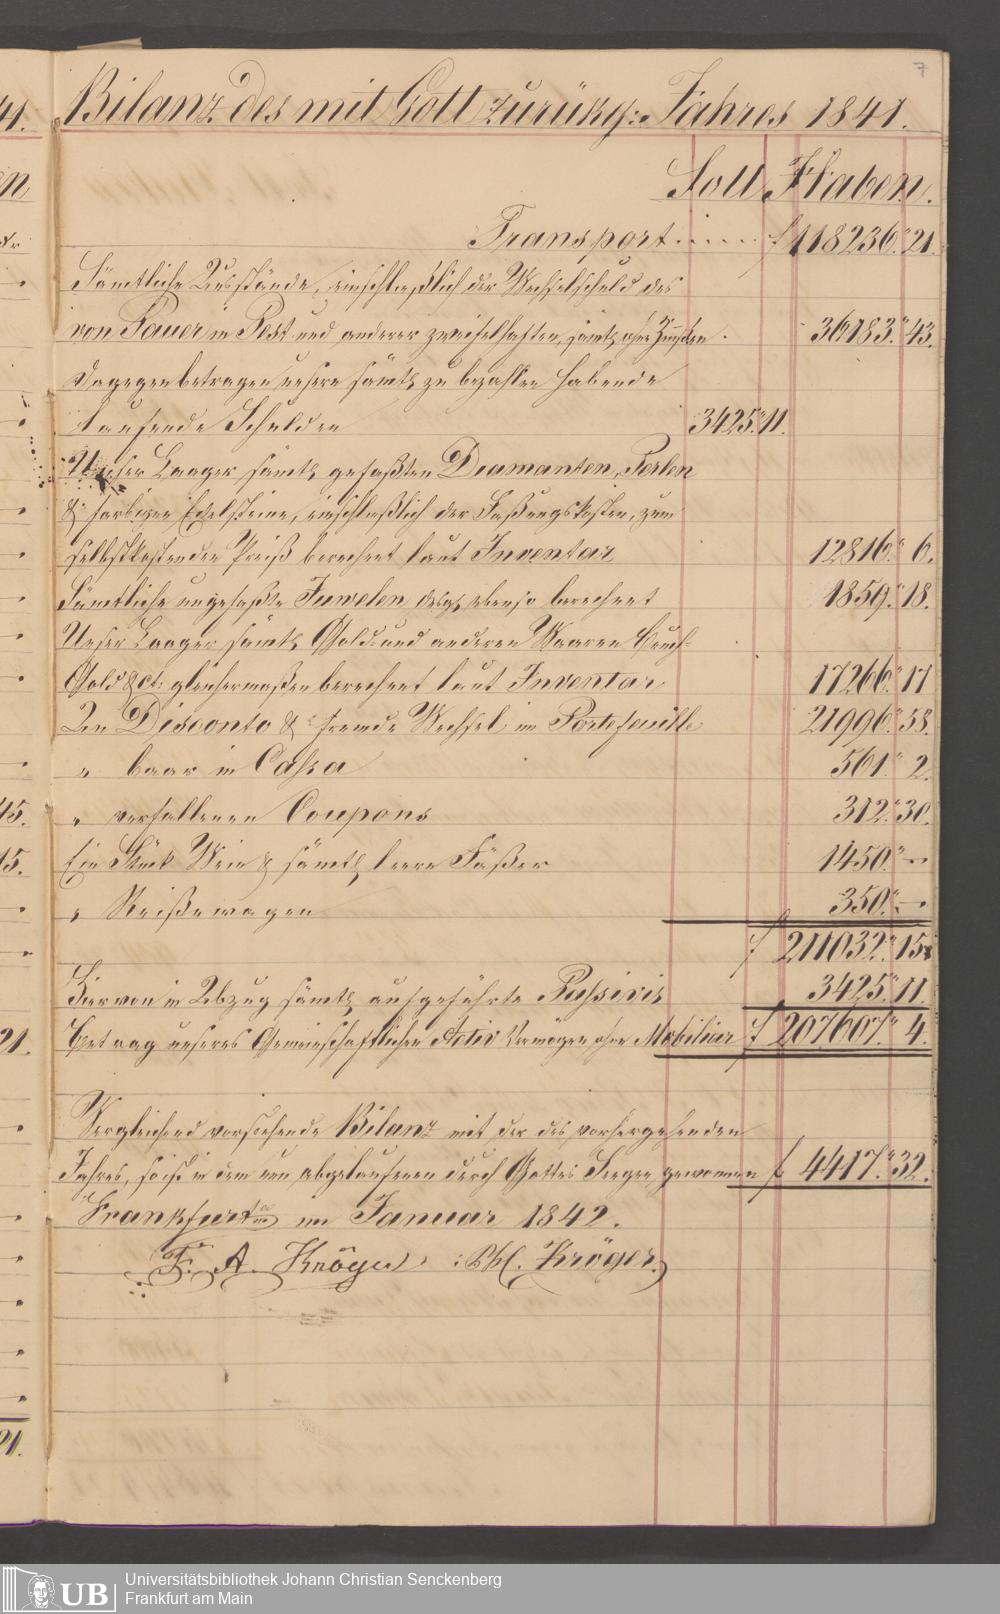 7
Bilanz des mit Gott zurükg: Jahres 1841.
Soll Haben.
Transport ..... f 118236." 21.
Sämtliche Ausstände, einschließlich der Wechselschuld des
von Pauer in Pest und anderer zweifelhaften, sämtl. ohne Zinßen . 36183." 43.
Dagegen betragen unsere sämtl. zu bezahlen habende
laufende Schulden 3425." 11.
Unser Laager sämtl. gefaßten Diamanten, Perlen
& farbigen Edelsteine, einschließlich der Faßungskosten, zum
selbstkostenden Preiß berechnet laut Inventar 12816." 6.
Sämtliche ungefaßte Juwelen desgl. ebenso berechnet 1859." 18.
Unser Laager sämtl. Gold- und anderen Waaren Bruch-
Gold &ct: gleichermaßen berechnet laut Inventar 17266." 17
An Disconto & fremde Wechsel im Portefeuille 21996." 58.
" baar in Cassa 561." 2.
" verfallenen Coupons 312." 30.
Ein Stück Wein & sämtl. leere Fäßer 1450." –.
" Reißewagen 350." –.
f 211032." 15
Hiervon in Abzug sämtl. aufgeführte Passivis 3425." 11.
Betrag unseres Gemeinschaftlichen Activ Vermögen ohne Mobiliar f 207607." 4.
Vergleichend vorstehende Bilanz mit der des vorhergehenden
Jahres, so ist in dem nun abgelaufenen durch Gottes Seegen gewonnen f 4417." 32.
Frankfurt a/m im Januar 1842.
F. A. Kröger Phl. Kröger
41.
45.
15.
21.
21.
UB
Universitätsbibliothek Johann Christian Senckenberg
Frankfurt am Main